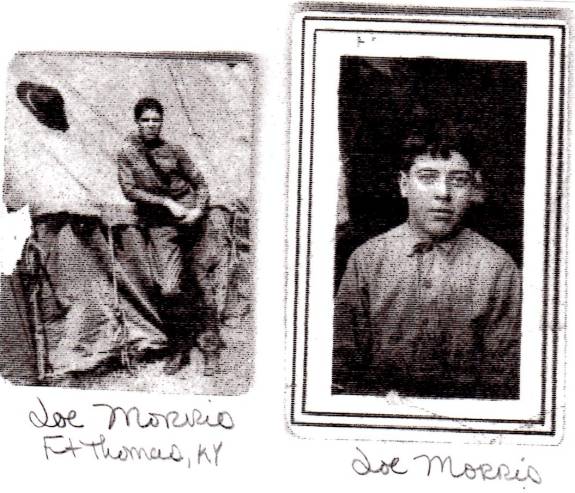 Joe Morris
Ft Thomas, KY
Joe Morris